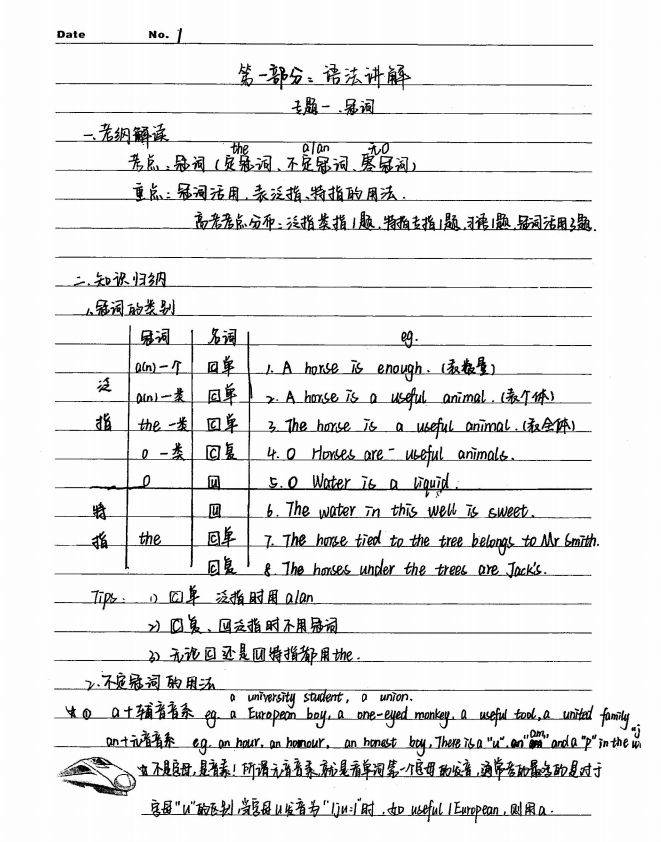 Date No. 1
第一部分：语法讲解
专题一、冠词
一、考纲解读
the a/an 无0
考点：冠词（定冠词、不定冠词、零冠词）
重点：冠词活用，表泛指、特指的用法.
高考考点分布：泛指类指1题，特指专指1题，习语1题，冠词活用3题.
二、知识归纳
1、冠词的类别
冠词 名词 eg.
a(n)一个 C单 1. A horse is enough.（表数量）
泛 a(n)一类 C单 2. A horse is a useful animal.（表个体）
指 the 一类 C单 3. The horse is a useful animal.（表全体）
0 一类 C复 4. 0 Horses are useful animals.
0 U 5. 0 Water is a liquid.
特 U 6. The water in this well is sweet.
指 the C单 7. The horse tied to the tree belongs to Mr Smith.
C复 8. The horses under the trees are Jack's.
Tips: 1) C单 泛指时用a/an
2) C复、U泛指时不用冠词
3) 无论C还是U特指都用the.
2、不定冠词的用法
a university student, a union.
★① a+辅音音素 eg. a European boy, a one-eyed monkey, a useful tool, a united family
an+元音音素 e.g. an hour, an honour, an honest boy, There is a "u", an "am" and a "p" in the
☆不是字母，是音素！所谓元音音素，就是看单词第一个字母的发音，通常考的最多的是对于
字母"u"的区别，当字母u发音为"/ju:/"时，如 useful / European，则用a.